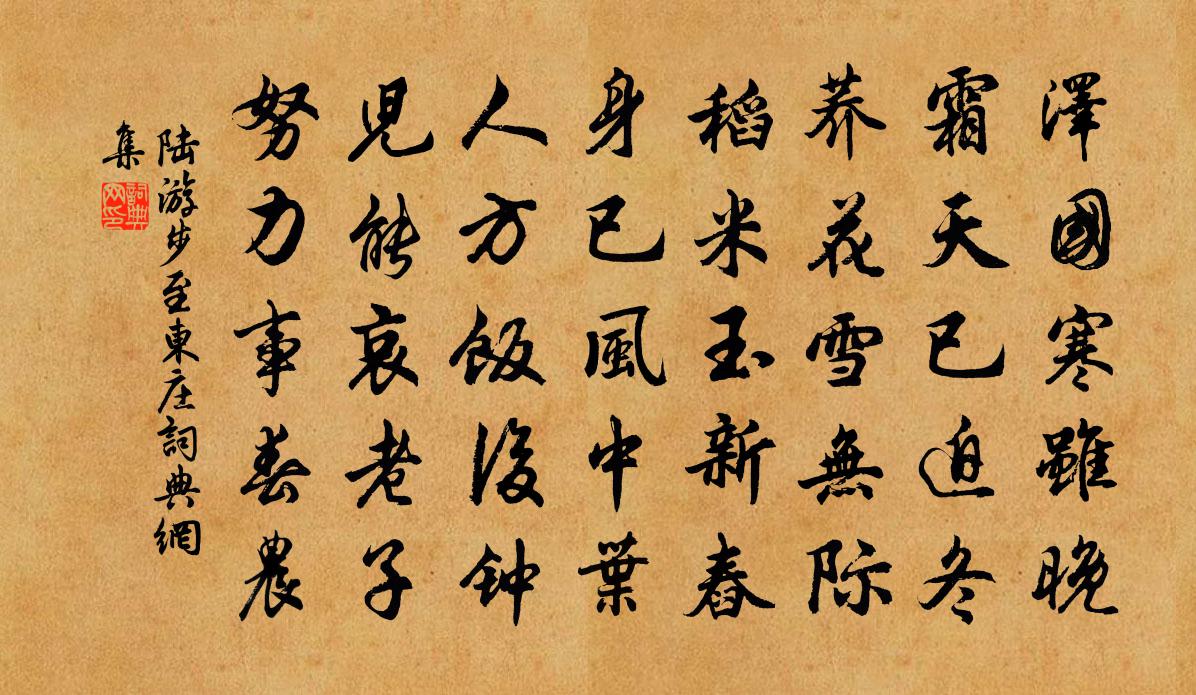 澤國寒雖晚
霜天已迫冬
荞花雪無际
稻米玉新舂
身已風中葉
人方飯後钟
児能哀老子
努力事春農
陆游步至東庄詞典網
集
詞典网印